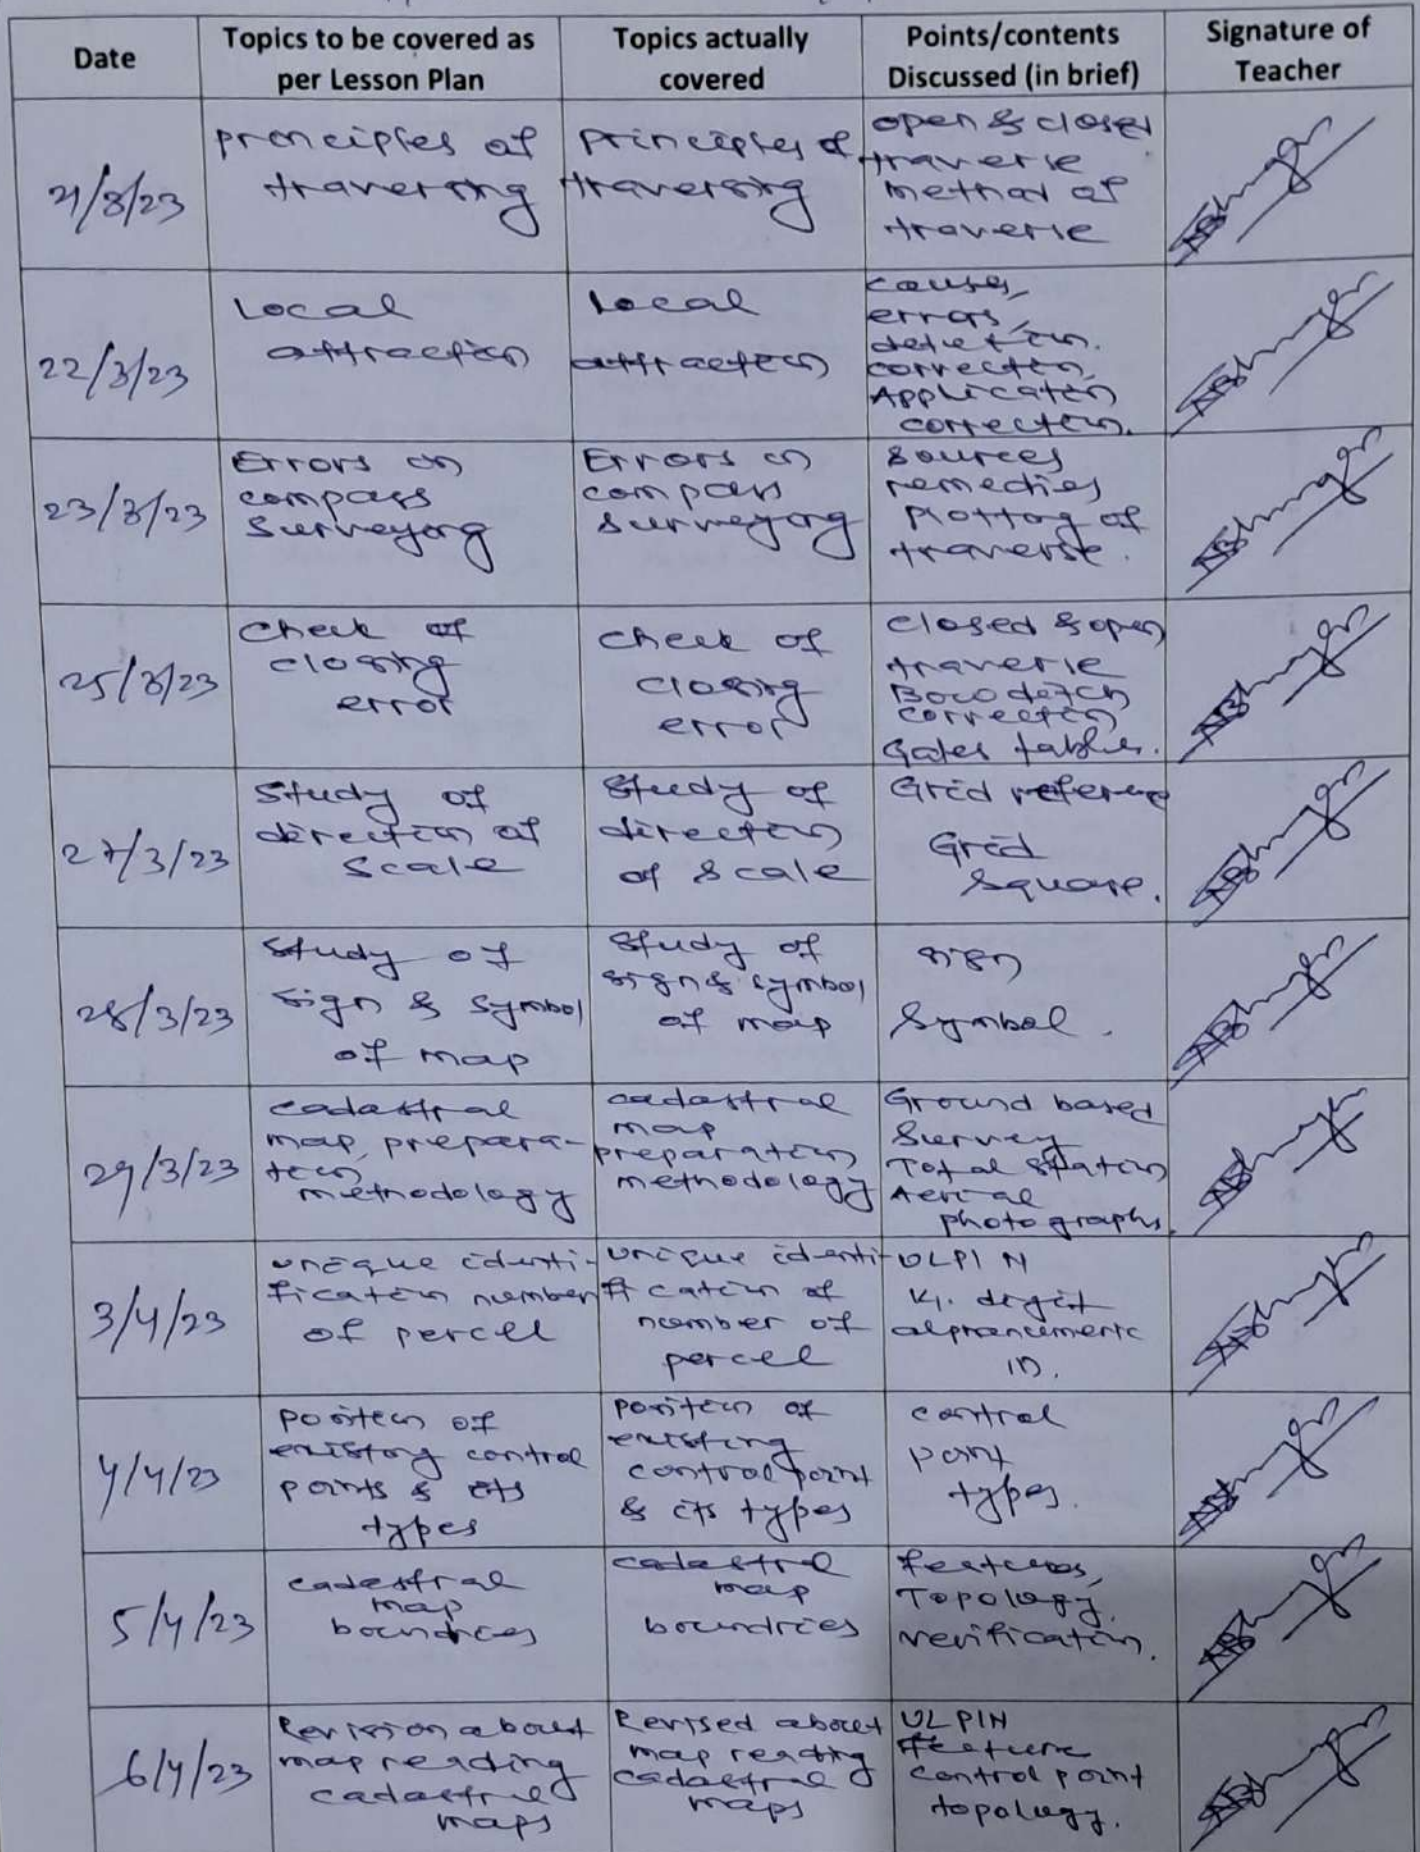 Date
Topics to be covered as
per Lesson Plan
Topics actually
covered
Points/contents
Discussed (in brief)
Signature of
Teacher
21/3/23
principles of
traversing
principles of
traversing
open & closed
traverse
method of
traverse
22/3/23
Local
attraction
Local
attraction
causes,
errors,
detection.
correction,
Application
correction.
23/3/23
Errors in
compass
Surveying
Errors in
compass
surveying
Sources
remedies
Plotting of
traverse.
25/3/23
Check of
closing
error
check of
closing
error
closed & open
traverse
Bowditch
correction
Gales tables.
27/3/23
Study of
direction of
Scale
Study of
direction
of scale
Grid reference
Grid
square.
28/3/23
Study of
sign & symbol
of map
Study of
sign & symbol
of map
sign
Symbol.
29/3/23
cadastral
map, prepara-
tion
methodology
cadastral
map
preparation
methodology
Ground based
Survey
Total station
Aerial
photographs.
3/4/23
unique identi-
fication number
of percel
unique identi-
fication of
number of
percel
ULPIN
digit
in.
4/4/23
position of
existing control
points & its
types
position of
existing
control point
& its types
control
point
types.
5/4/23
cadestral
map
boundries
cadastral
map
boundries
features,
Topology,
verification.
6/4/23
Revision about
map reading
cadastral
maps
Revised about
map reading
cadastral
maps
ULPIN
feature
control point
topology.